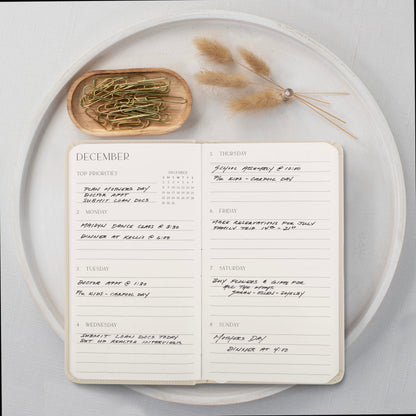 DECEMBER
TOP PRIORITIES
DECEMBER
PLAN MOTHERS DAY
DOCTOR APPT
SUBMIT LOAN DOCS
2 MONDAY
DANCE CLASS @ 3:30
DINNER AT KELLIS @ 6:00
3 TUESDAY
DOCTOR APPT @ 1:30
P/U KIDS - CARPOOL DAY
4 WEDNESDAY
SUBMIT LOAN DOCS TODAY
SET UP REALTOR INTERVIEWS
5 THURSDAY
SCHOOL ASSEMBLY @ 10:00
P/U KIDS - CARPOOL DAY
6 FRIDAY
MAKE RESERVATIONS FOR JULY
FAMILY TRIP 14TH - 21ST
7 SATURDAY
BUY FLOWERS & GIFTS FOR
ALL THE MOMS
SARAH - ELLEN - SHELBY
8 SUNDAY
MOTHERS DAY
DINNER AT 4:00